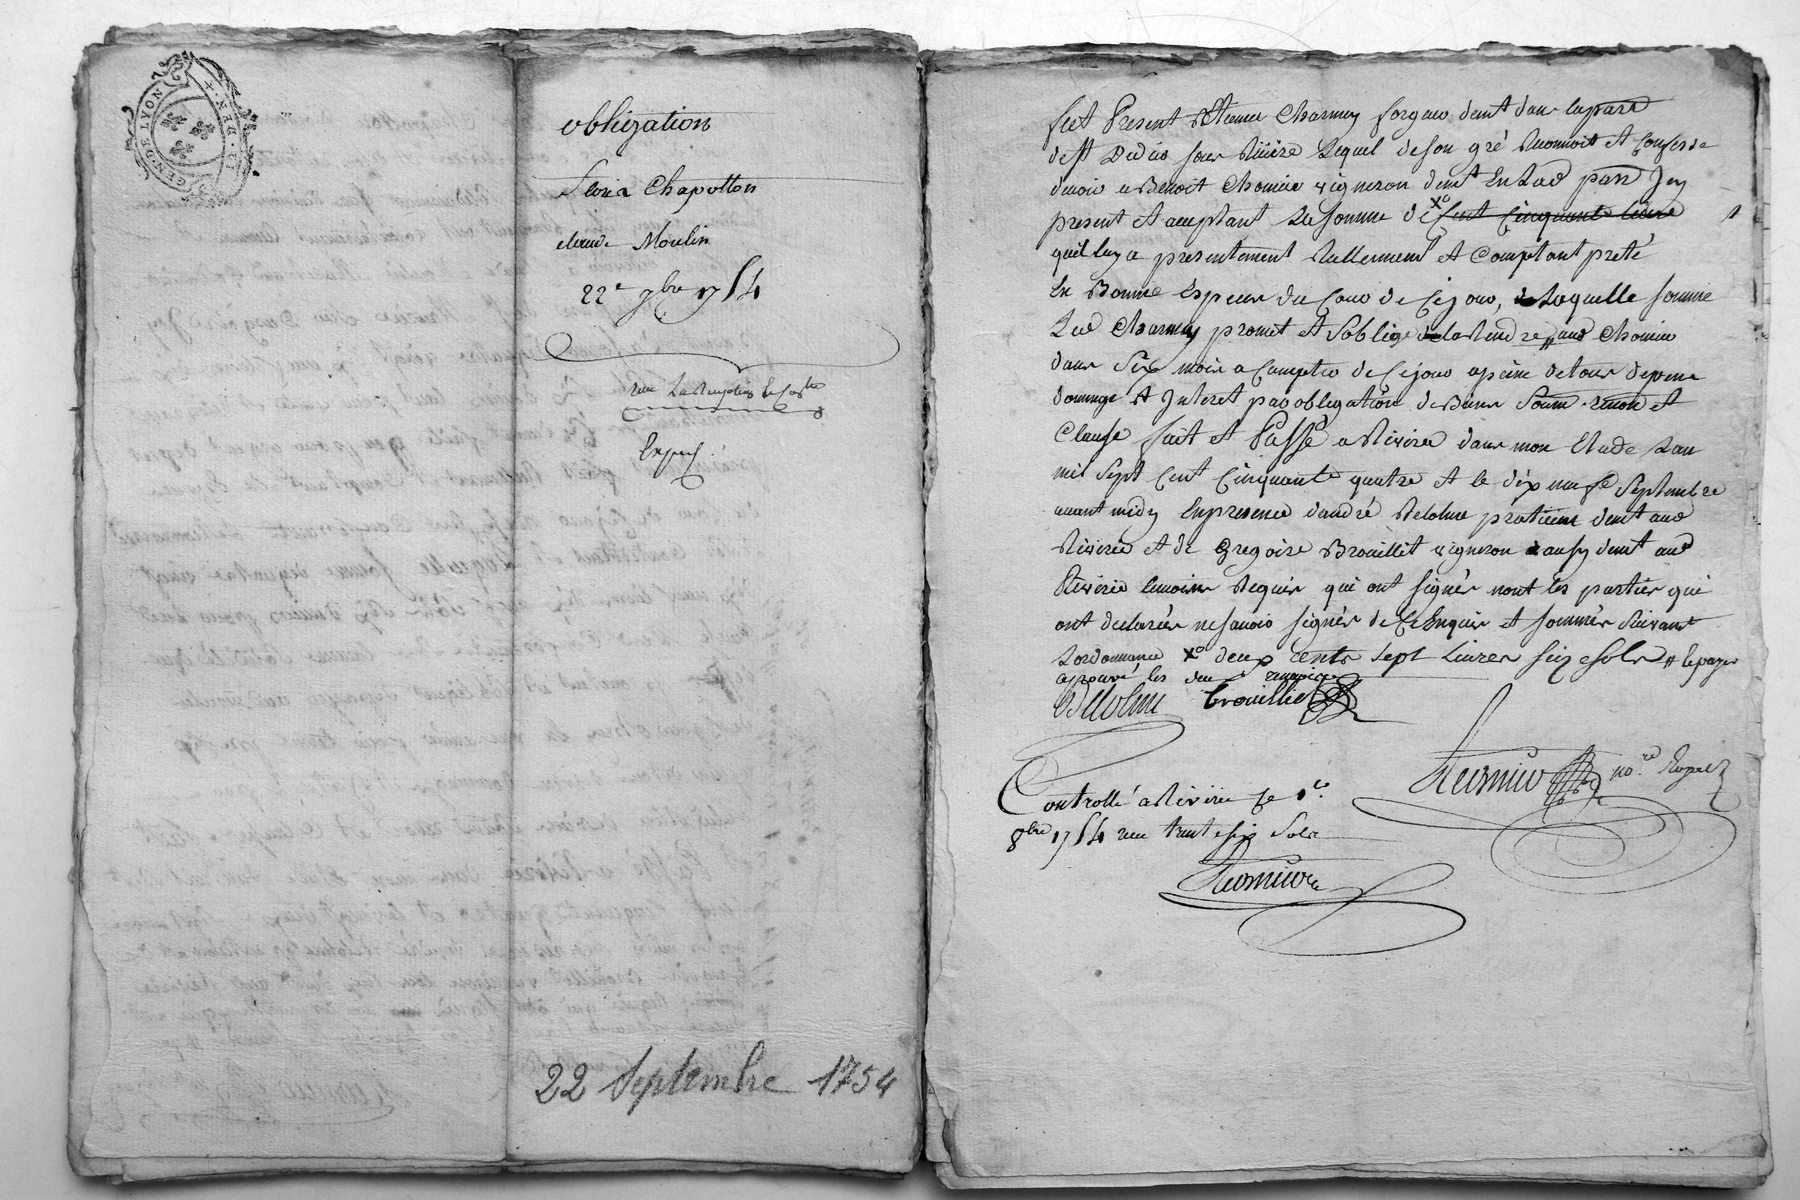 GEN·DE LYON
obligation
Chapotton
claude Moulin
22e 7bre 1754
Exped.
22 Septembre 1754
fut Present Etienne Charmey forgeur demt dans la parr
de St Didier sous Riviere Lequel de son gré Reconnoit et Confesse
devoir a Benoit Chomier vigneron demt En Lad parr Jcy
present et acceptant La somme de Xo Cent Cinquante Livres
quil luy a presentement Reellement et Comptant preté
En Bonne Especes du Cour de Ce jour, Laquelle somme
Led Charmey promet et Soblige de la Rendre aud Chomier
dans Six mois a Compter de Ce jour a peine de tous depens
domage et Interet par obligation de Biens Soum. renon. et
Clause fait et Passé a Riverie dans mon Etude Lan
mil Sept Cent Cinquante quatre et le dix neufe Septembre
avant midy En presence d'andré Delolme praticien demt aud
Riverie et de Gregoire Brouillet vigneron aussy demt aud
Riverie temoins Requis qui ont signés nont les parties qui
ont declarées ne savoir signer de Ce Enquis et sommés Suivant
Lordonnance Xo deux cents Sept Livres seize sols
approuvé les deux renvois
Delolme Brouillet
no.re Royal
Controllé a Riverie Le 1er
8bre 1754 reçu trent six Sols